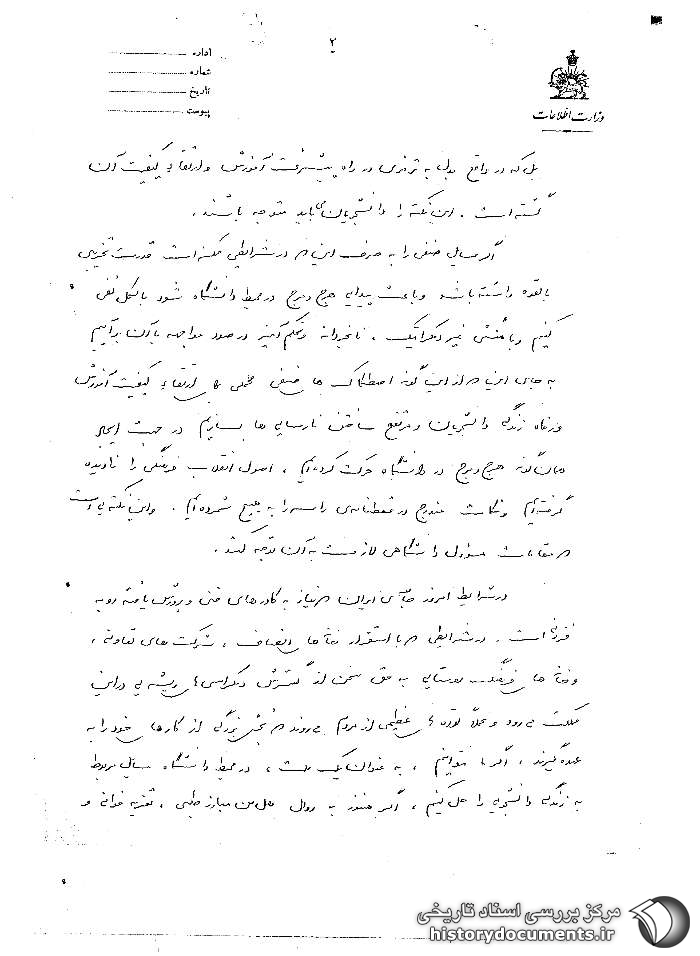 ۲
اداره
شماره
تاریخ
پیوست
وزارت اطلاعات
بل که در واقع بدل به ترمزی در راه پیشرفت آموزش و ارتقاء کیفیت آن
گشته است . این نکته را دانشجویان باید متوجه باشند .
اگر مسایل صنفی را به صرف این که در شرایطی ممکن است قدرت تخریبی
بالقوه داشته باشد و باعث پیدایی هرج و مرج در محیط دانشگاه شود بالکل نفی
کنیم و با منشی غیر دمکراتیک ، نابخردانه و تحکم‌آمیز در صدد مواجهه با آن برآییم
به جای این که از این گونه اصطکاک ها کیفیت آموزش
و رفاه زندگی دانشجویان و مرتفع ساختن نارسایی ها بسازیم در جهت ایجاد
همان گونه هرج و مرج در دانشگاه حرکت کرده‌ایم ، اصول انقلاب فرهنگی را نادیده
گرفته‌ایم و نکات مندرج در قطعنامه‌ی رامسر را به هیچ شمرده‌ایم . و این نکته یی است
که مقامات مسؤول دانشگاهی لازمست به آن توجه کنند .
در شرایط امروز جامعه‌ی ایران که نیاز به کادرهای فنی و پرورش یافته رو به
فزونی است . در شرایطی که با استقرار خانه‌های انصاف ، شرکت های تعاونی ،
و خانه های فرهنگ روستایی به حق سخن از گسترش دمکراسی ریشه یی در این
مملکت می رود و عملا توده های عظیمی از مردم می‌روند که بخش بزرگی از کارهای خود را به
عهده گیرند ، اگر ما نتوانیم ، به عنوان یک ملت ، در محیط دانشگاه مسایل مربوط
به زندگی دانشجویی را حل کنیم ، اگر هنوز به روال مبارز طلبی ، تعزیه خوانی و
مرکز بررسی اسناد تاریخی
historydocuments.ir